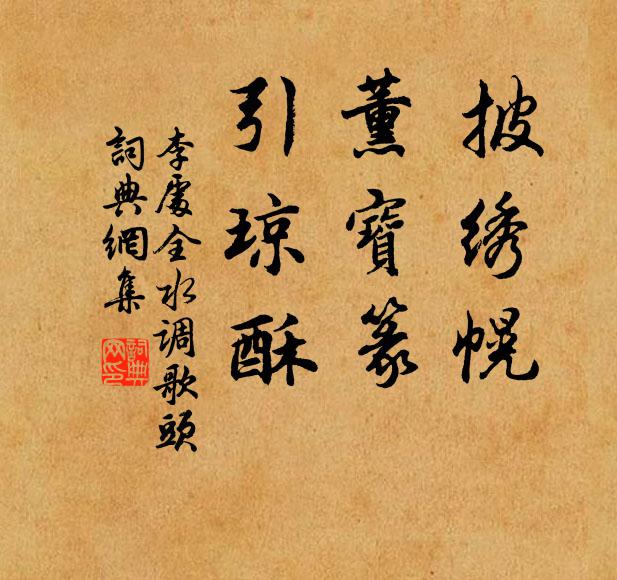 披绣幌
薰寶篆
引琼酥
李處全水调歌頭
詞典網集
詞典網印